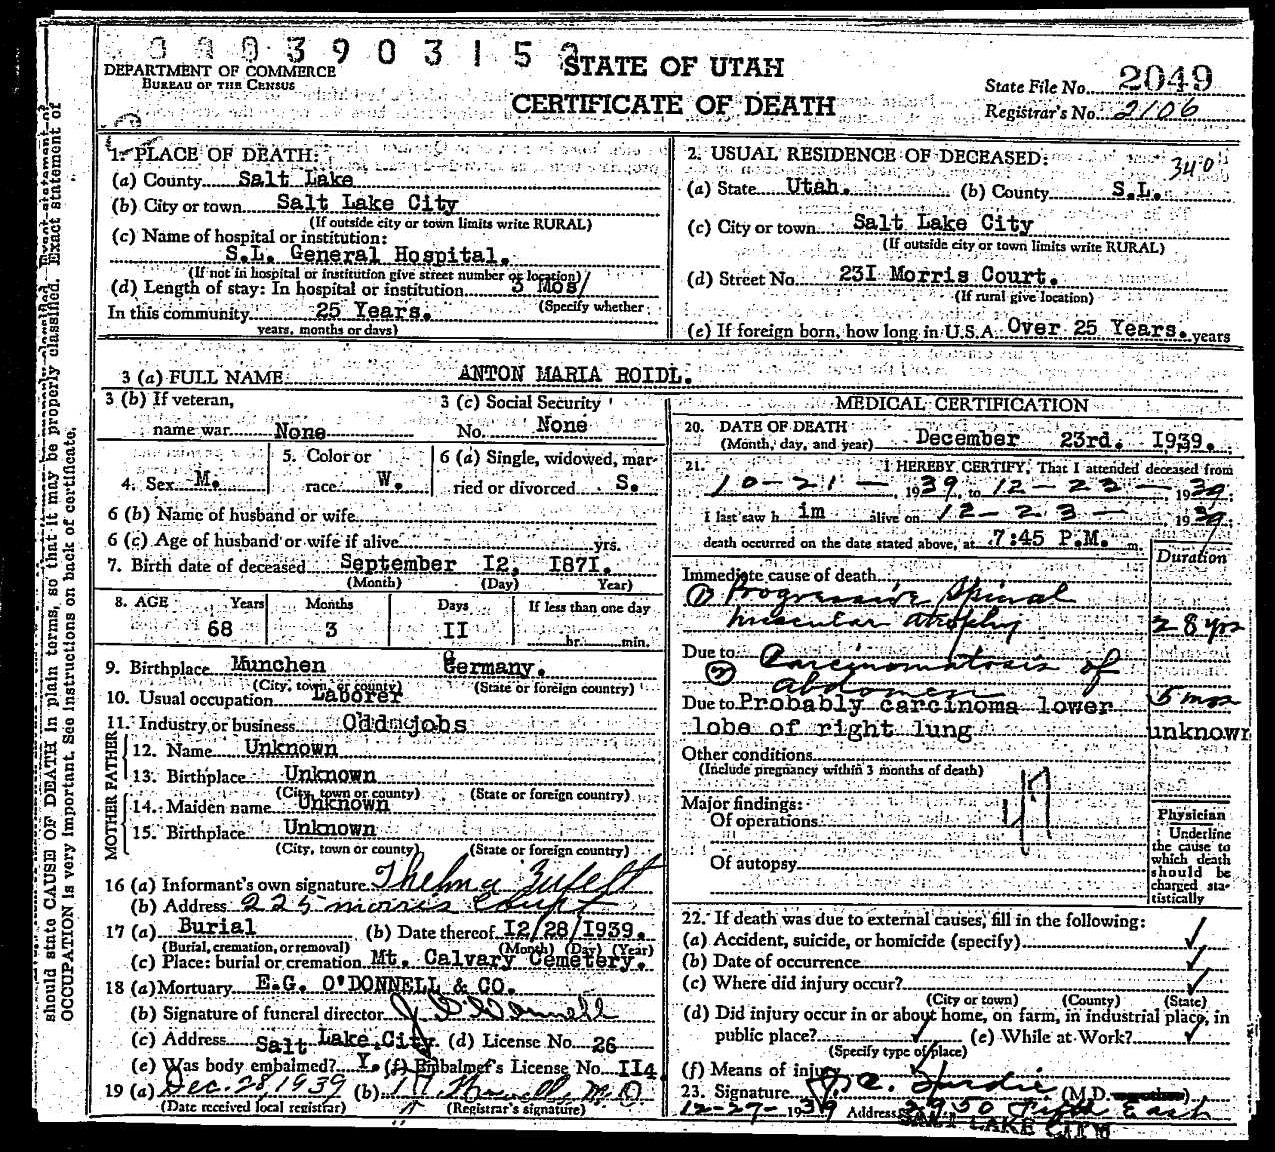 0003903152
DEPARTMENT OF COMMERCE
BUREAU OF THE CENSUS
STATE OF UTAH
CERTIFICATE OF DEATH
State File No. 2049
Registrar's No. 2106
should state CAUSE OF DEATH in plain terms, so that it may be properly classified. Exact statement of
OCCUPATION is very important. See instructions on back of certificate.
1. PLACE OF DEATH:
(a) County Salt Lake
(b) City or town Salt Lake City
(If outside city or town limits write RURAL)
(c) Name of hospital or institution:
S.L. General Hospital.
(If not in hospital or institution give street number or location)
(d) Length of stay: In hospital or institution 3 Mos/
(Specify whether
In this community 25 Years.
years, months or days)
2. USUAL RESIDENCE OF DECEASED:
340
(a) State Utah. (b) County S.L.
(c) City or town Salt Lake City
(If outside city or town limits write RURAL)
(d) Street No. 23I Morris Court.
(If rural give location)
(e) If foreign born, how long in U.S.A. Over 25 Years. years
3 (a) FULL NAME ANTON MARIA ROIDL.
3 (b) If veteran,
name war None
3 (c) Social Security
No. None
4. Sex M.
5. Color or
race W.
6 (a) Single, widowed, mar-
ried or divorced S.
6 (b) Name of husband or wife
6 (c) Age of husband or wife if alive yrs.
7. Birth date of deceased September I2, I87I.
(Month) (Day) Year)
8. AGE Years Months Days If less than one day
68 3 II hr. min.
9. Birthplace Munchen Germany.
(City, town or county) (State or foreign country)
10. Usual occupation Laborer
11. Industry or business Odd jobs
FATHER
12. Name Unknown
13. Birthplace Unknown
(City, town or county) (State or foreign country)
MOTHER
14. Maiden name Unknown
15. Birthplace Unknown
(City, town or county) (State or foreign country)
16 (a) Informant's own signature Thelma Zufelt
(b) Address 225 Morris Court
17 (a) Burial (b) Date thereof I2/28/I939.
(Burial, cremation, or removal) (Month) (Day) (Year)
(c) Place: burial or cremation Mt. Calvary Cemetery.
18 (a) Mortuary E.G. O'DONNELL & CO.
(b) Signature of funeral director J O'Donnell
(c) Address Salt Lake City. (d) License No. 26
(e) Was body embalmed? Y. (f) Embalmer's License No. II4
19 (a) Dec. 28, 1939 (b) M.D.
(Date received local registrar) (Registrar's signature)
MEDICAL CERTIFICATION
20. DATE OF DEATH
(Month, day, and year) December 23rd. I939.
21. I HEREBY CERTIFY, That I attended deceased from
10-21-, 1939, to 12-23-, 1939;
I last saw h im alive on 12-23-, 1939;
death occurred on the date stated above, at 7:45 P.M. m.
Duration
Immediate cause of death
(1) Progressive Spinal
muscular atrophy 28 yrs
Due to (2) Carcinomatosis of
abdomen 5 mos
Due to Probably carcinoma lower
lobe of right lung unknown
Other conditions
(Include pregnancy within 3 months of death)
Major findings:
Of operations
Of autopsy
Physician
Underline
the cause to
which death
should be
charged sta-
tistically
22. If death was due to external causes, fill in the following:
(a) Accident, suicide, or homicide (specify) ✓
(b) Date of occurrence ✓
(c) Where did injury occur? ✓
(City or town) (County) (State)
(d) Did injury occur in or about home, on farm, in industrial place, in
public place? ✓ (e) While at Work? ✓
(Specify type of place)
(f) Means of injury ✓
23. Signature (M.D.
12-27-1939 Address 2950 Fifth East
SALT LAKE CITY